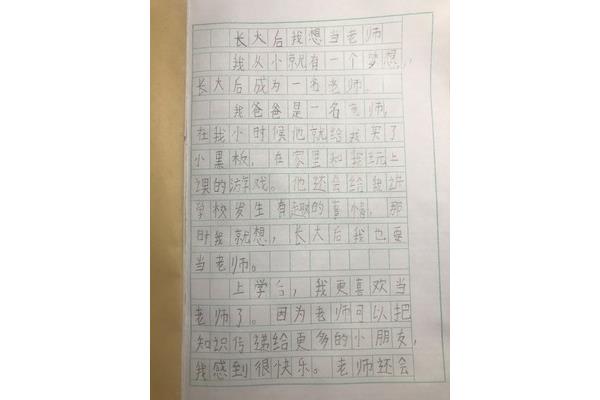 长大后我想当老师
我从小就有一个梦想,
长大后成为一名老师。
我爸爸是一名老师,
在我小时候他就给我买了
小黑板,在家里和我玩上
课的游戏。他还会给我讲
学校发生有趣的事情,那
时我就想,长大后我也要
当老师。
上学后,我更喜欢当
老师了。因为老师可以把
知识传递给更多的小朋友,
我感到很快乐。老师还会